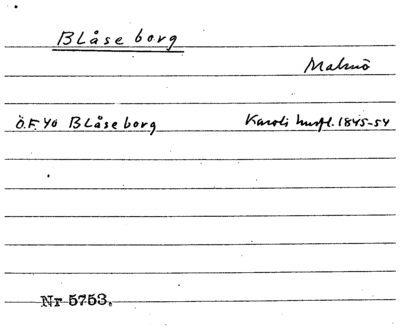 Blåseborg
Malmö
Ö.F. 40 Blåseborg Karoli husfl. 1845-54
Nr 5753.